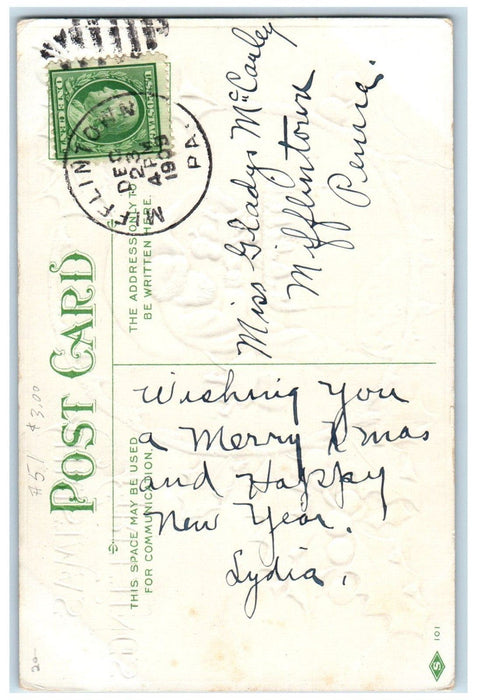 POST CARD
THIS SPACE MAY BE USED
FOR COMMUNICATION.
THE ADDRESS ONLY TO
BE WRITTEN HERE.
U.S. POSTAGE
ONE CENT
MIFFLINTOWN
DEC
23
4 PM
1909
PA.
Miss Gladys McCauley
Mifflintown
Penna.
Wishing You
a Merry Xmas
and Happy
New Year.
Lydia.
#51 $3.00
20-
S
101